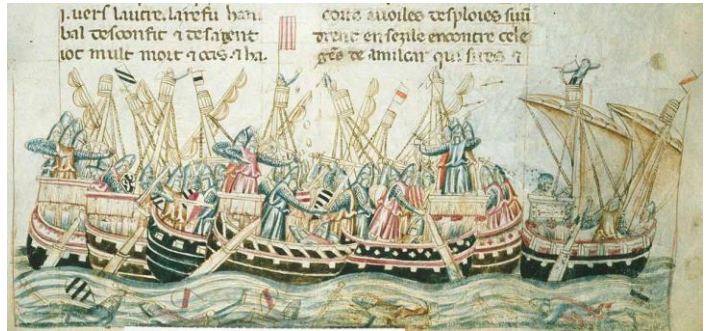 j. uers lautre. la refu han
bal desconfit ⁊ desa gent
iot mult mort ⁊ cas. ⁊ ha
cons a uoiles desploies suu
drent en sezile encontre cele
ges de amilcar qui sires ⁊